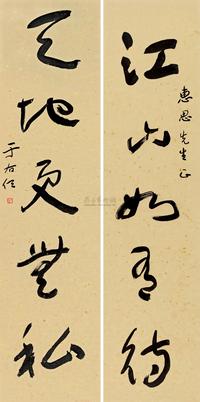 惠恩先生正
江山如有待
天地更無私
于右任